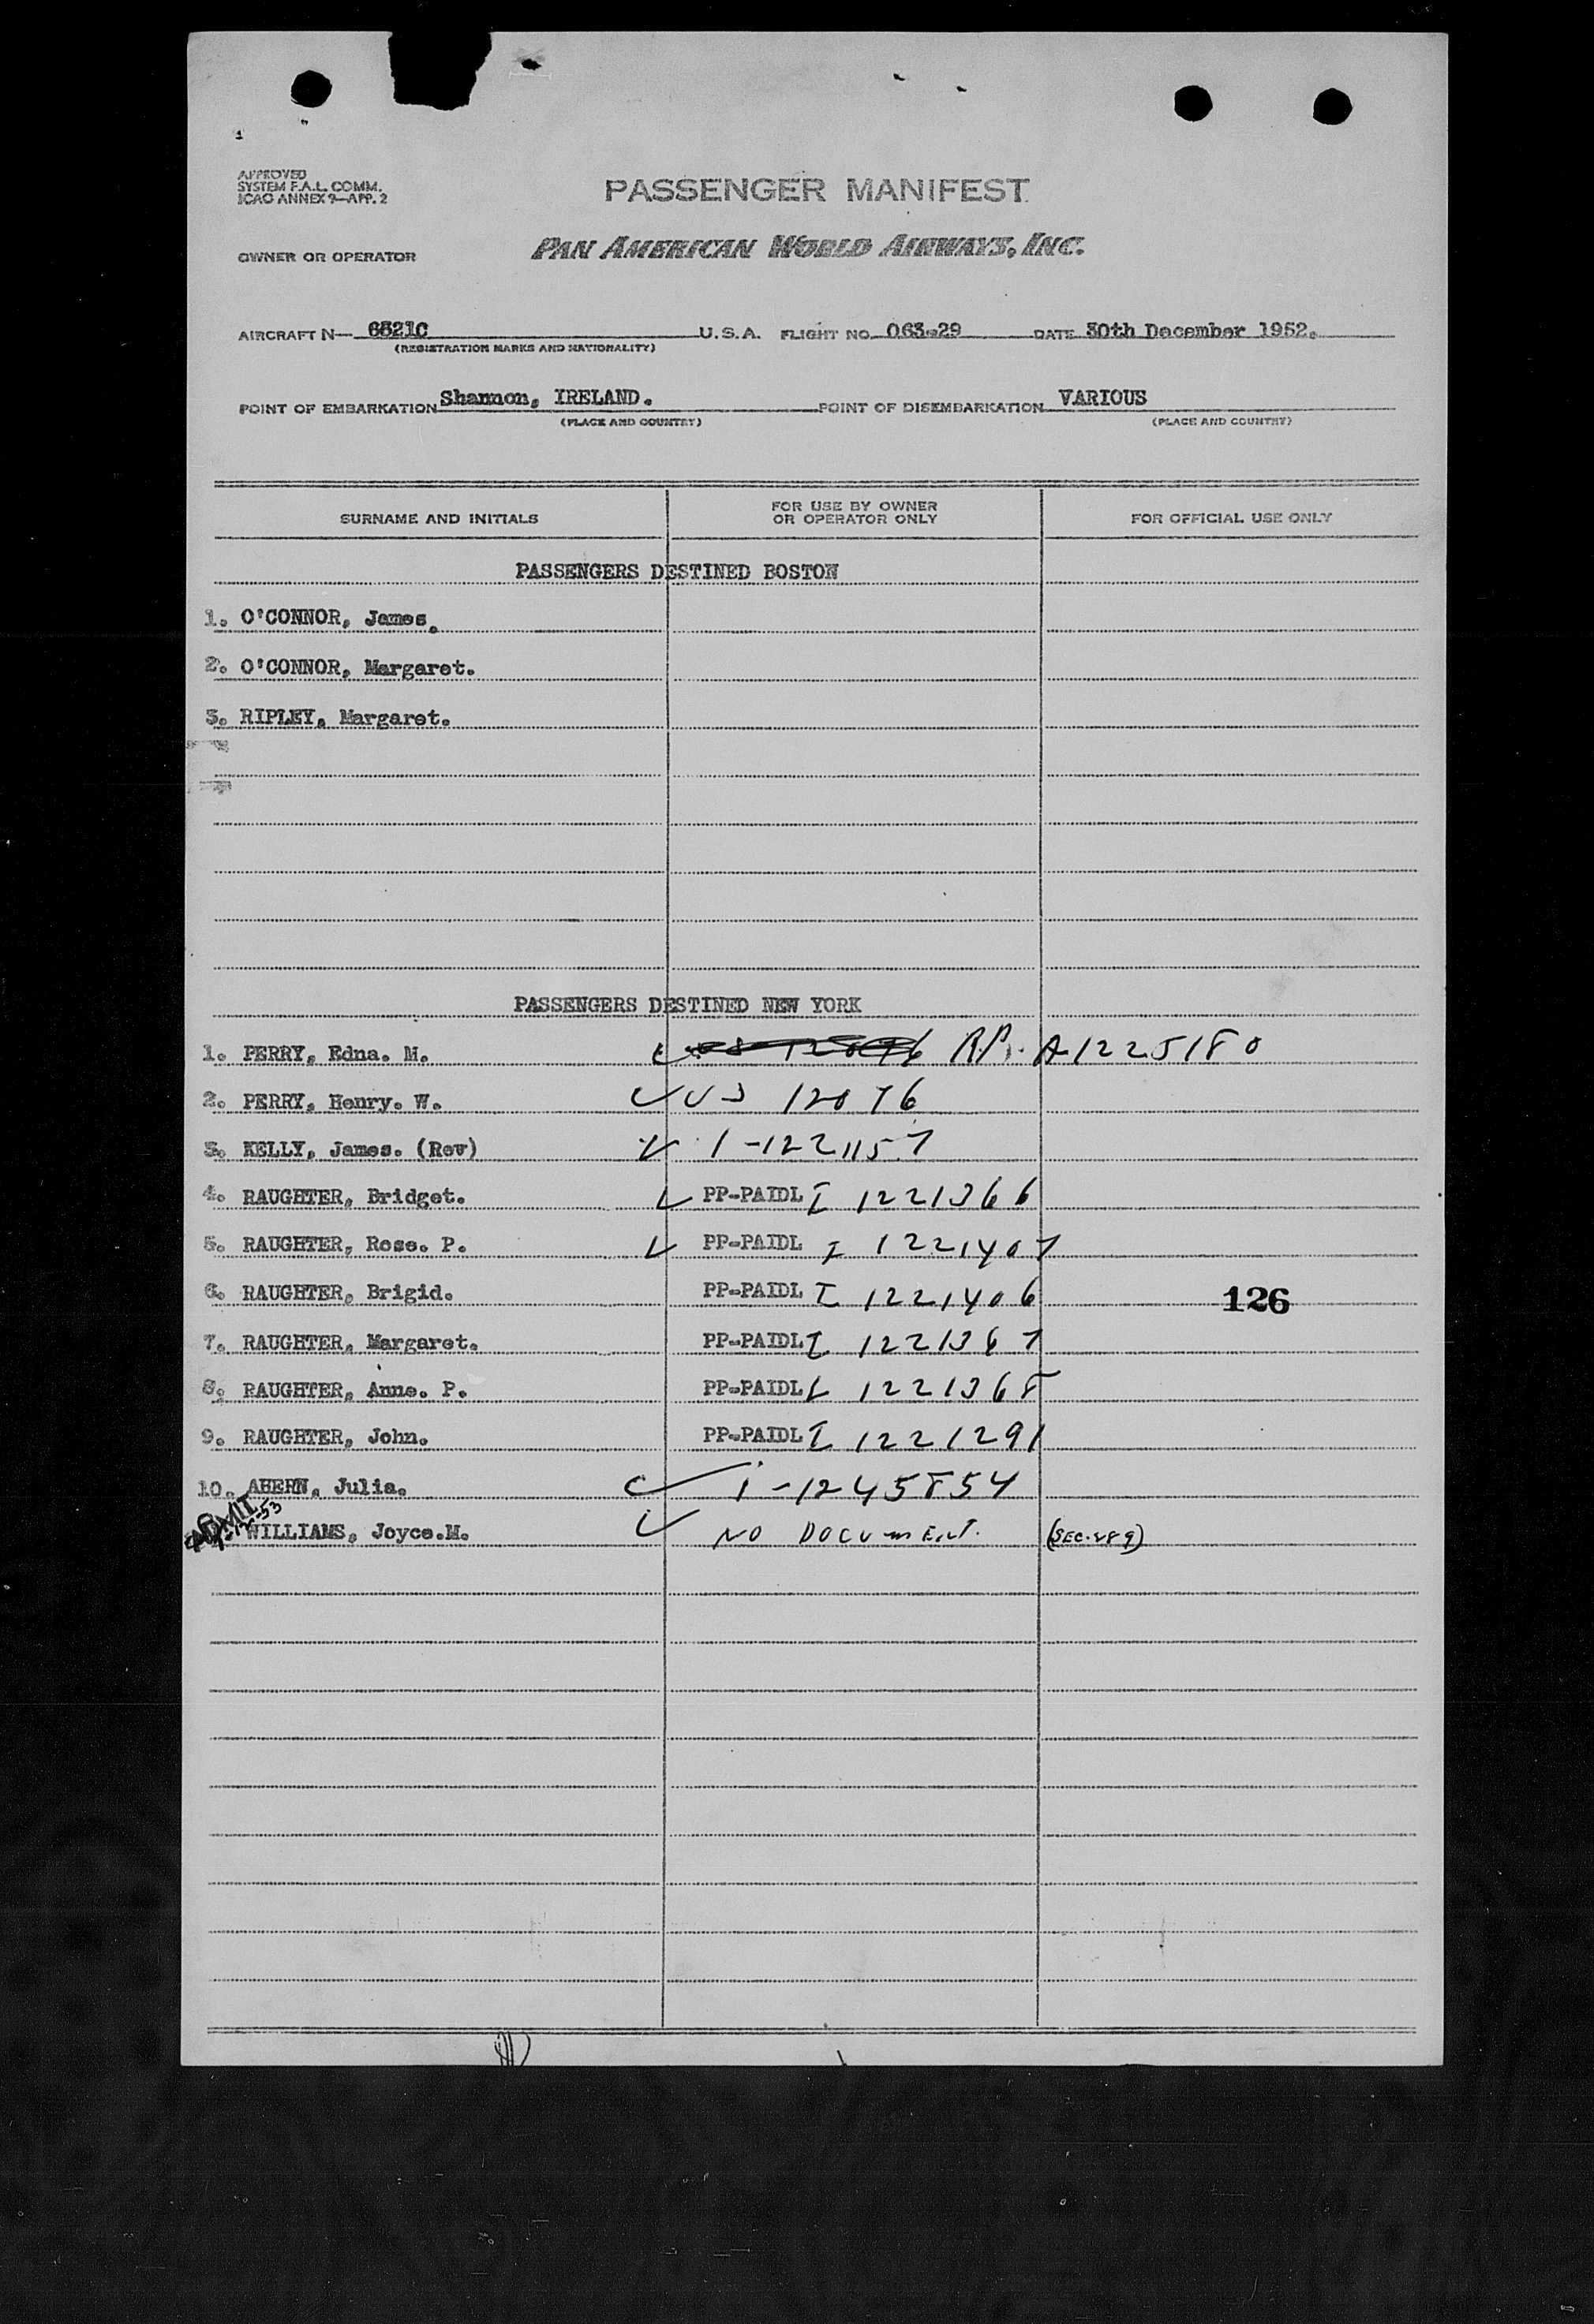 APPROVED
SYSTEM F.A.L. COMM.
ICAO ANNEX 9—APP. 2
PASSENGER MANIFEST
OWNER OR OPERATOR
PAN AMERICAN WORLD AIRWAYS, INC.
AIRCRAFT N— 6521C U.S.A. FLIGHT NO. 063-29 DATE 30th December 1952.
(REGISTRATION MARKS AND NATIONALITY)
POINT OF EMBARKATION Shannon, IRELAND. POINT OF DISEMBARKATION VARIOUS
(PLACE AND COUNTRY) (PLACE AND COUNTRY)
SURNAME AND INITIALS FOR USE BY OWNER OR OPERATOR ONLY FOR OFFICIAL USE ONLY
PASSENGERS DESTINED BOSTON
1. O'CONNOR, James.
2. O'CONNOR, Margaret.
3. RIPLEY, Margaret.
PASSENGERS DESTINED NEW YORK
1. PERRY, Edna. M. A1225180
2. PERRY, Henry. W. 12076
3. KELLY, James. (Rev) I-1221157
4. RAUGHTER, Bridget. PP-PAIDL I 1221366
5. RAUGHTER, Rose. P. PP-PAIDL I 1221407
6. RAUGHTER, Brigid. PP-PAIDL I 1221406
126
7. RAUGHTER, Margaret. PP-PAIDL I 1221367
8. RAUGHTER, Anne. P. PP-PAIDL I 1221368
9. RAUGHTER, John. PP-PAIDL I 1221291
10. AHERN, Julia. I-1245854
ADMIT
WILLIAMS, Joyce.M. NO DOCUMENT. (SEC. 289)